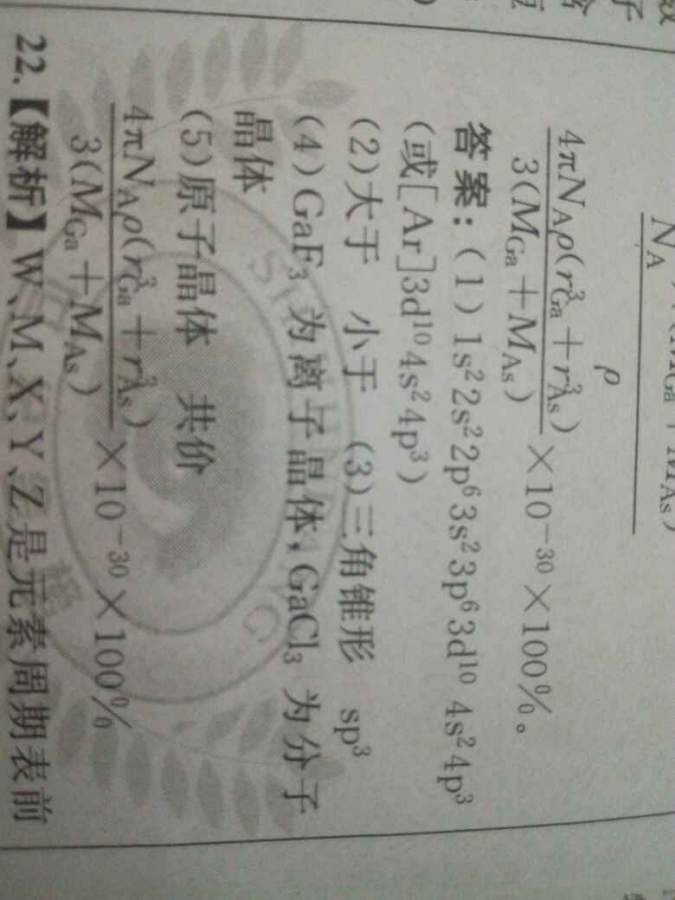 N_A
M_As)
ρ
4πN_Aρ(r³_Ga+r³_As)
3(M_Ga+M_As)
×10⁻³⁰×100%。
答案：(1)1s²2s²2p⁶3s²3p⁶3d¹⁰ 4s²4p³
(或[Ar]3d¹⁰4s²4p³)
(2)大于 小于 (3)三角锥形 sp³
(4)GaF₃ 为离子晶体，GaCl₃ 为分子
晶体
(5)原子晶体 共价
4πN_Aρ(r³_Ga+r³_As)
3(M_Ga+M_As)
×10⁻³⁰×100%
22.【解析】W、M、X、Y、Z是元素周期表前